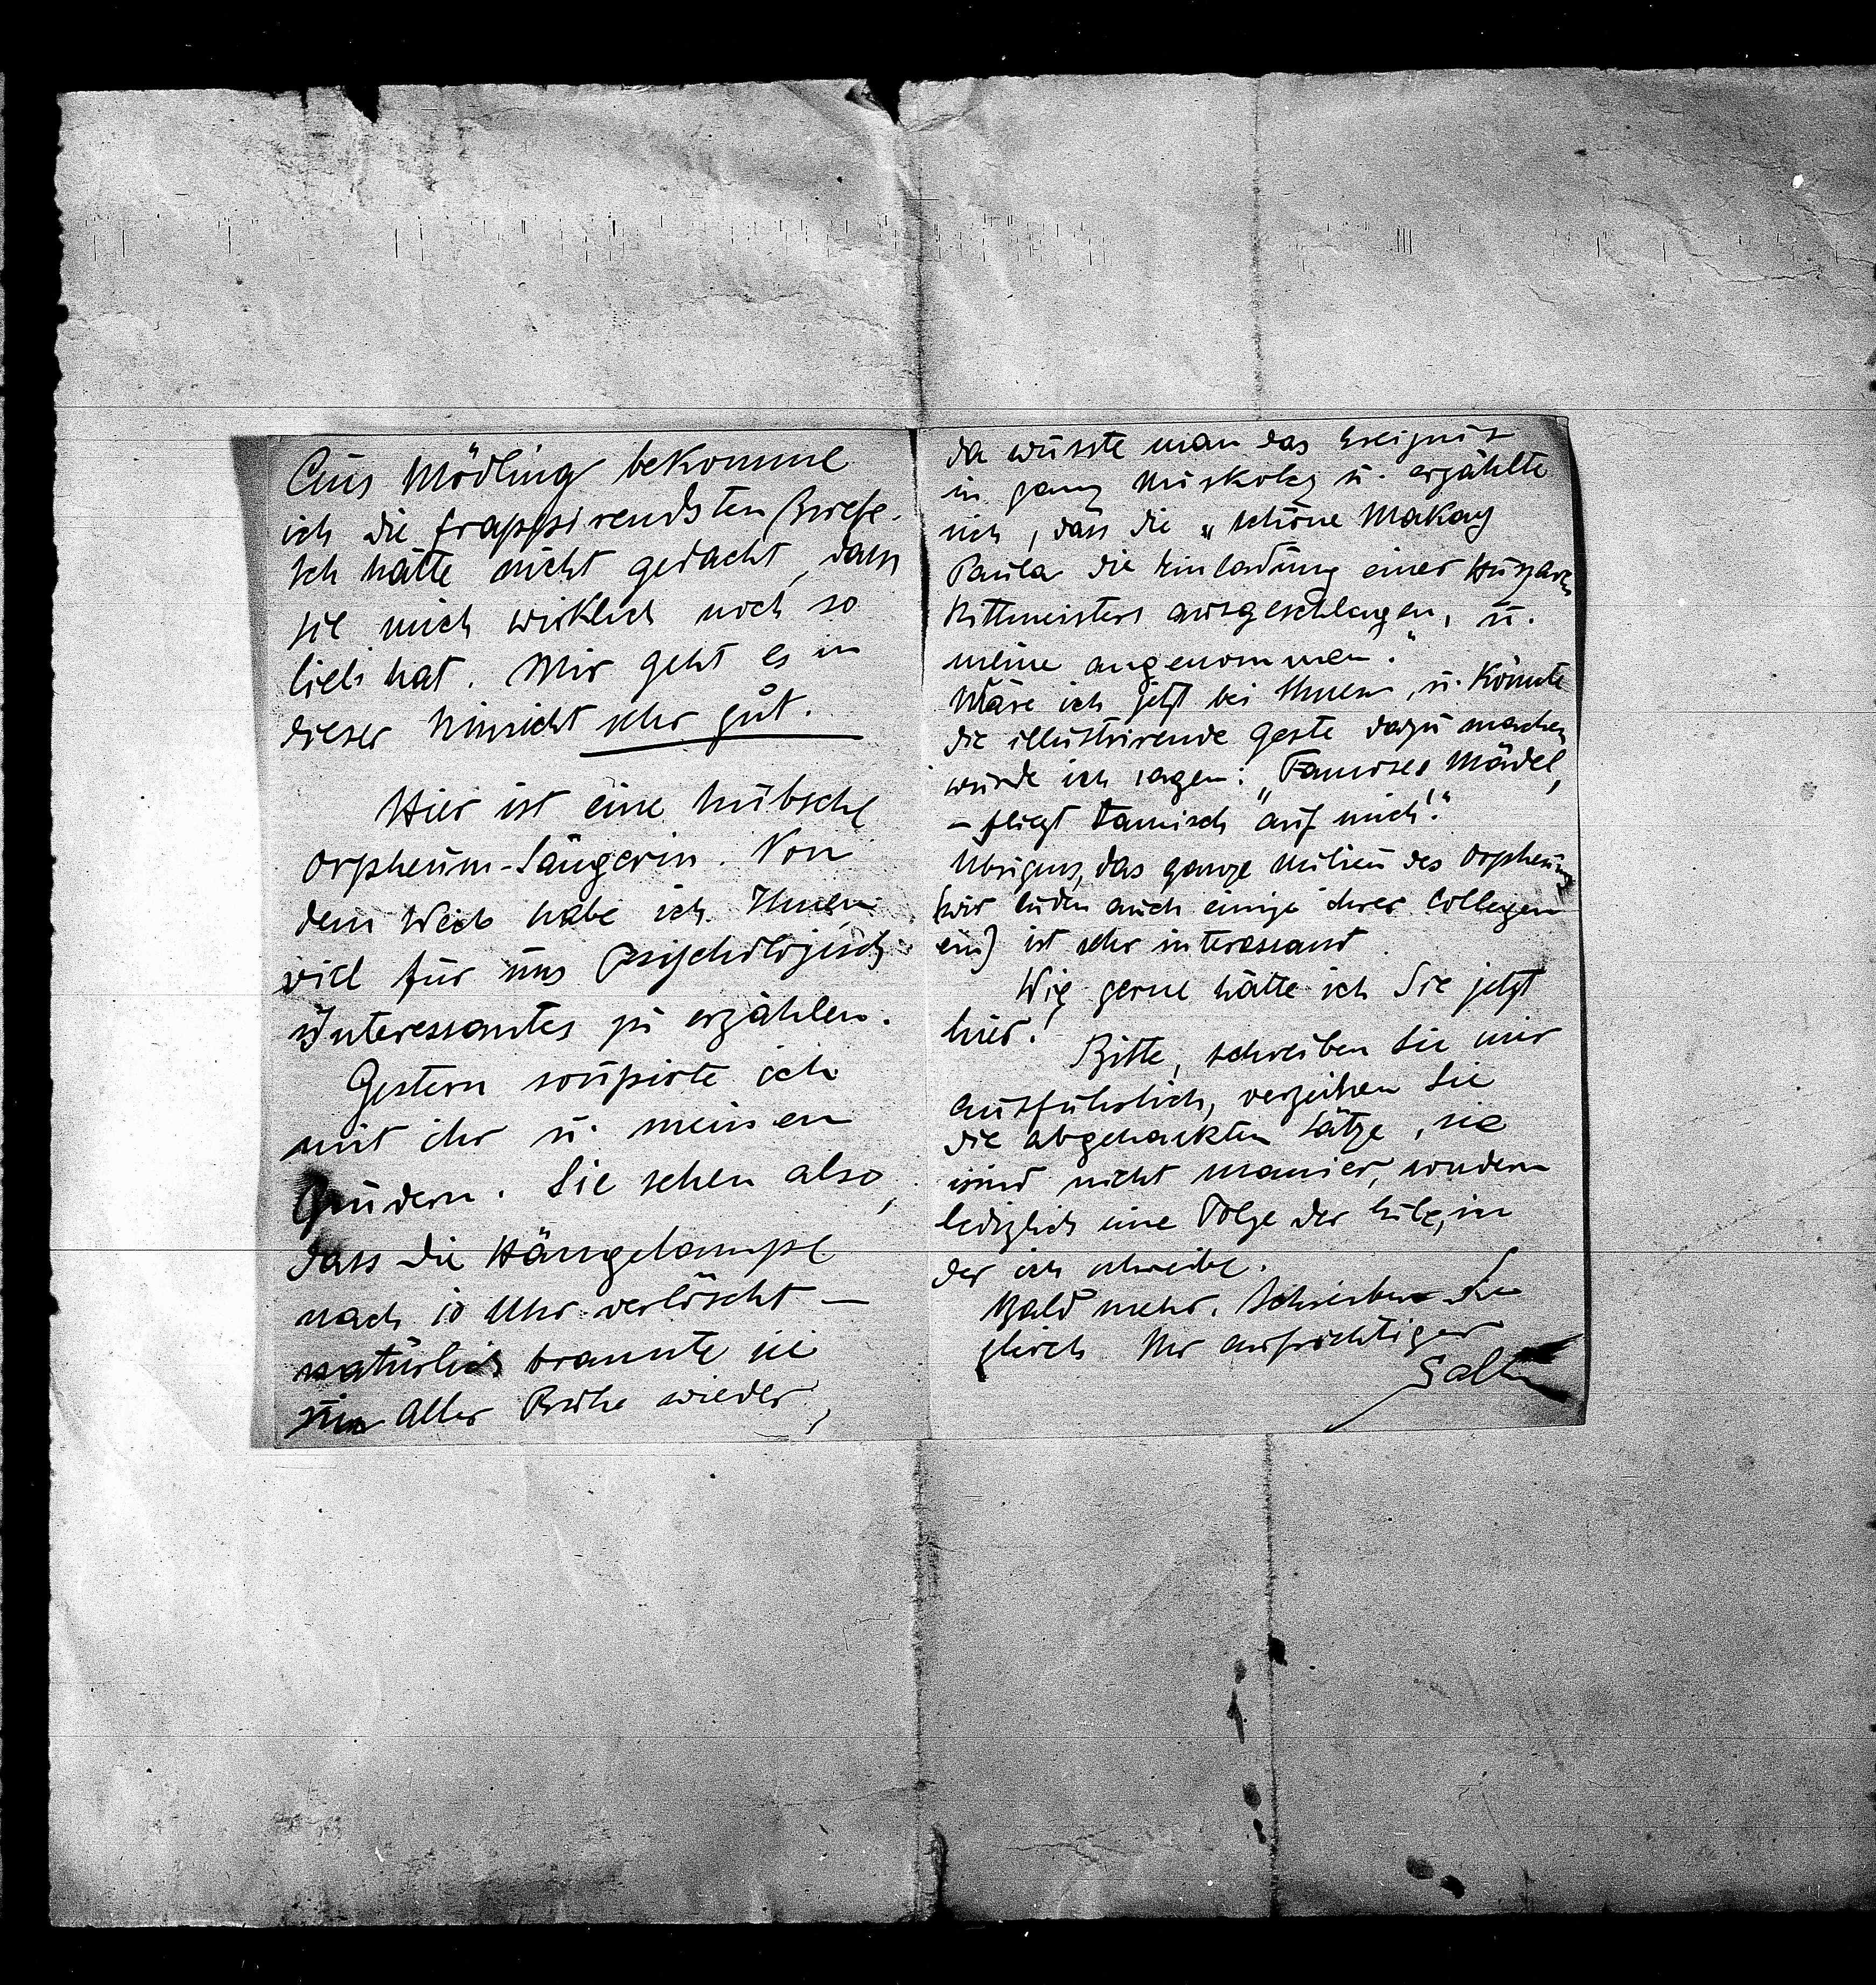 Aus Mödling bekomme
ich die frappirendsten Briefe.
Ich hätte nicht gedacht, dass
sie mich wirklich noch so
lieb hat. Mir geht es in
dieser Hinsicht sehr gut.
Hier ist eine hübsche
Orpheum-Sängerin. Von
dem Weib habe ich Ihnen
viel für uns Psychologisch
Interessantes zu erzählen.
Gestern soupirte ich
mit ihr u. meinen
Brüdern. Sie sehen also,
dass die Hängelampe
nach 10 Uhr verlöscht —
natürlich brannte sie
in aller Frühe wieder,
da wusste man das Ereignis
in ganz Miskolcz u. erzählte
sich, dass die „schöne Makay
Paula die Einladung eines Huszaren
Rittmeisters ausgeschlagen, u.
meine angenommen."
Wäre ich jetzt bei Ihnen, u. könnte
die illustrirende Geste dazu machen
würde ich sagen: „Famoses Mädel,
— fliegt damisch auf mich!"
Übrigens, das ganze Milieu des Orpheums
(wir luden auch einige ihrer Collegen
ein) ist sehr interessant.
Wie gerne hätte ich Sie jetzt
hier!
Bitte, schreiben Sie mir
ausführlich, verzeihen Sie
die abgehackten Sätze, sie
sind nicht Manier, sondern
lediglich eine Folge der Eile, in
der ich schreibe.
Bald mehr. Schreiben Sie
gleich Ihr aufrichtiger
Salten